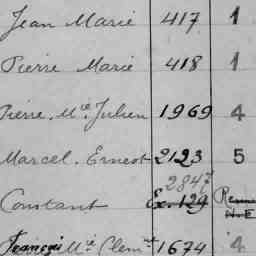 Jean Marie 417 1
Pierre Marie 418 1
Pierre. Mie Julien 1969 4
Marcel. Ernest 2123 5
2847
Constant Ex. 129
François Mie Clemnt 1674 4